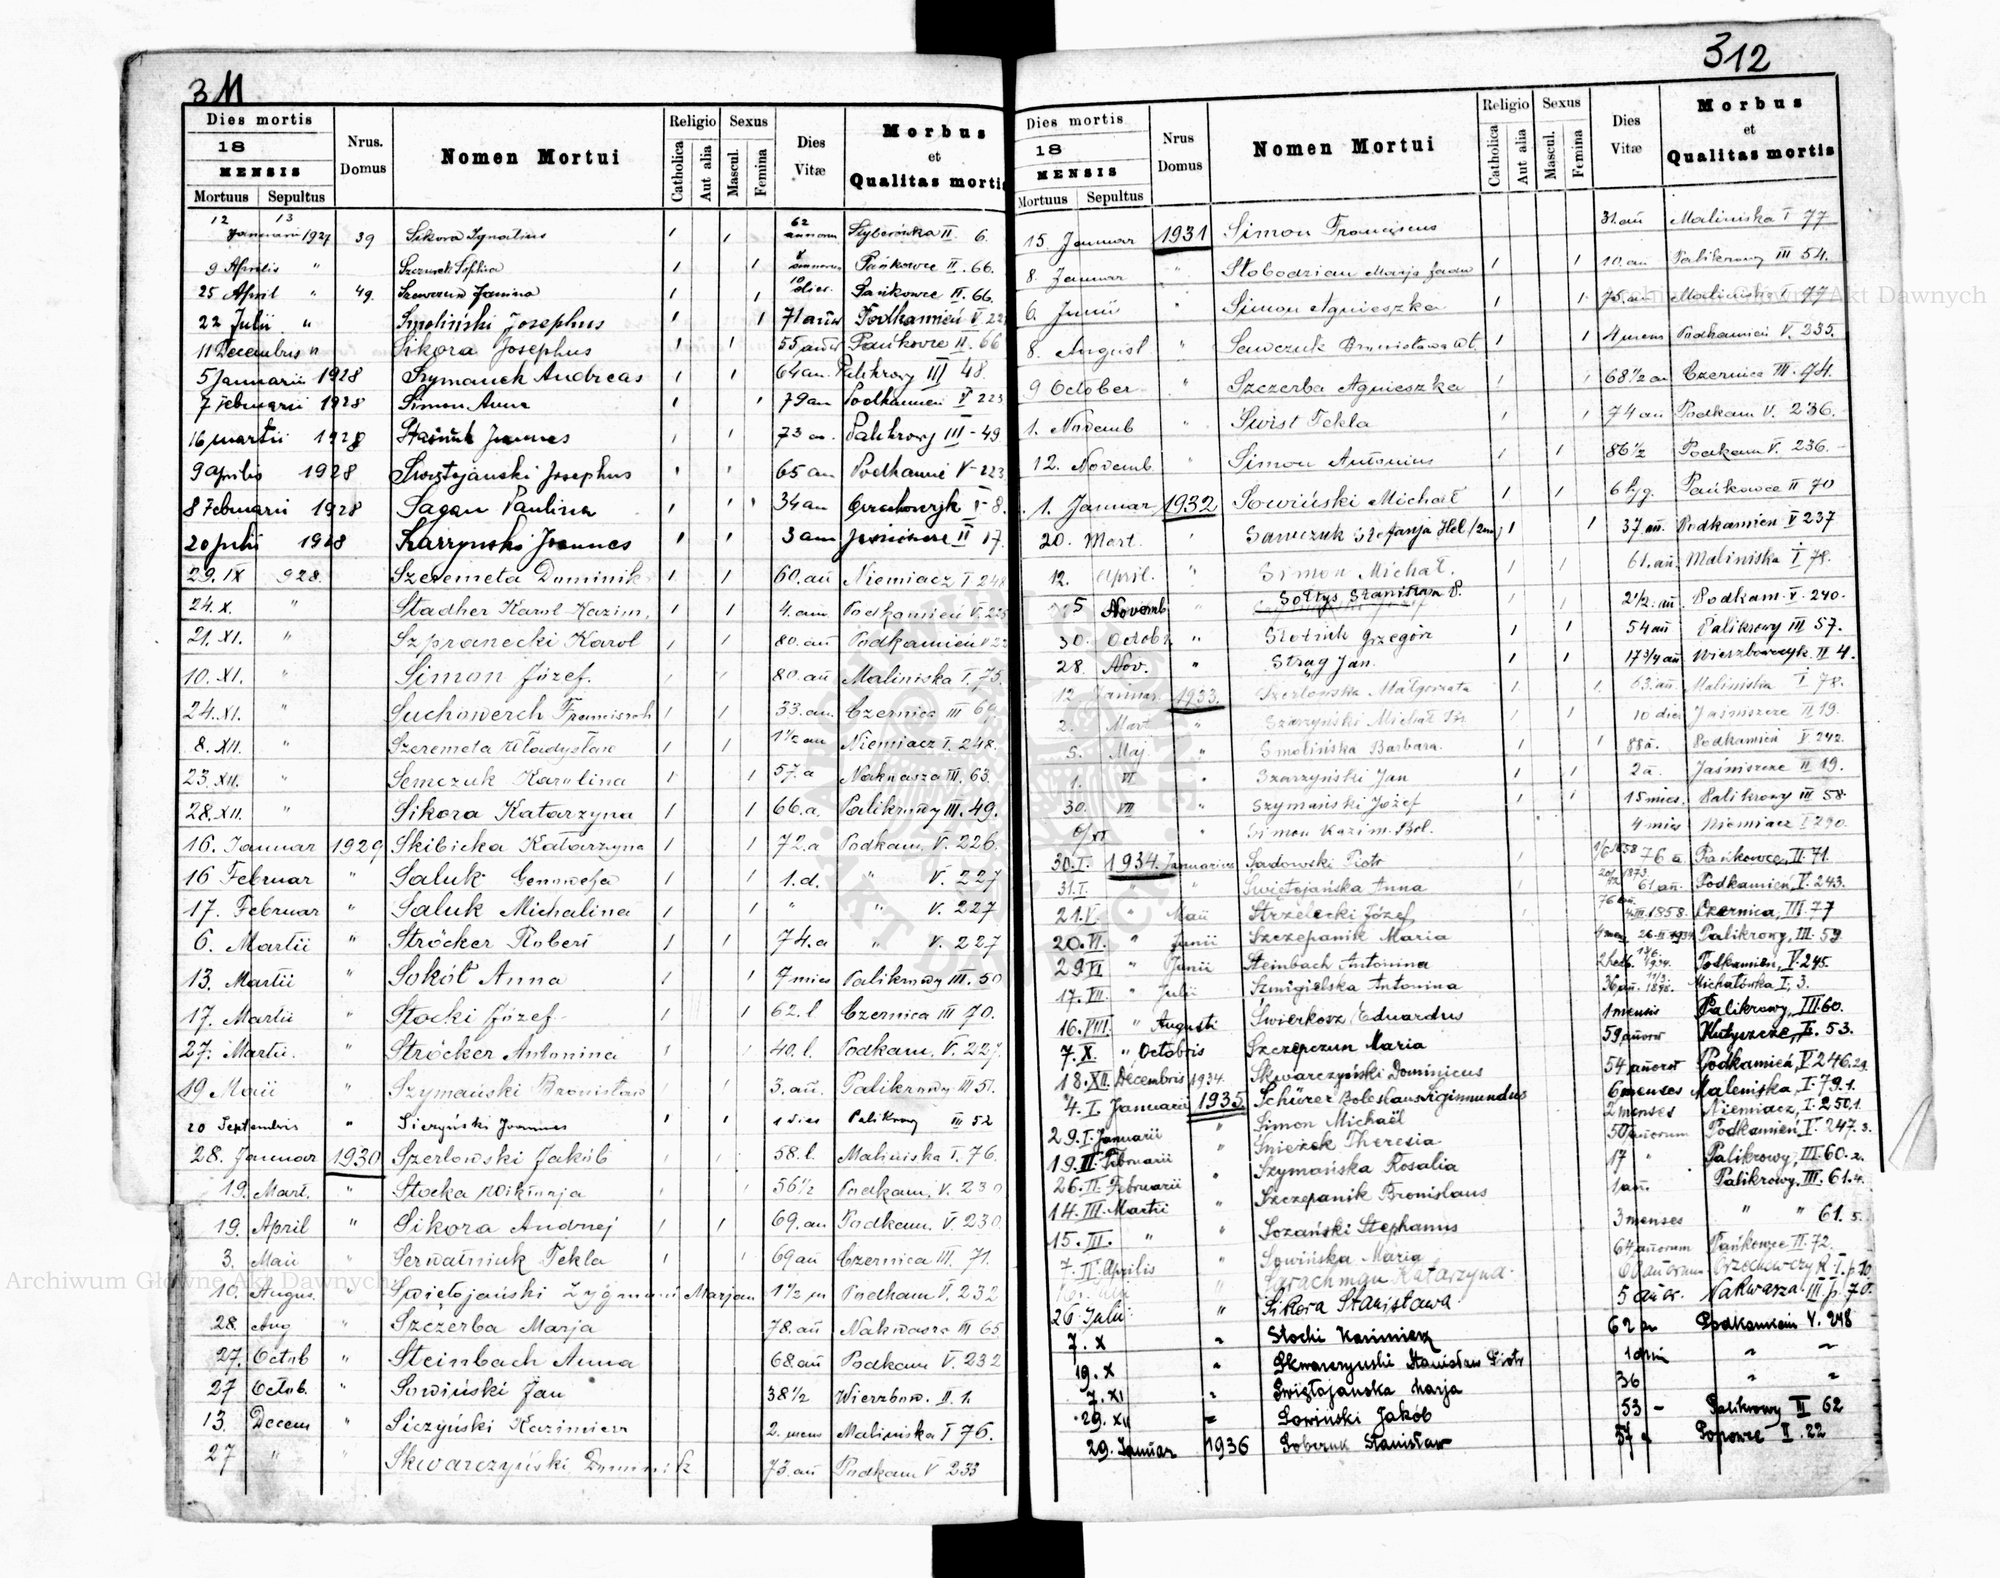 311
Dies mortis
18
MENSIS
Mortuus Sepultus
Nrus. Domus
Nomen Mortui
Religio
Catholica Aut alia
Sexus
Mascul. Femina
Dies Vitæ
Morbus et Qualitas mortis
12 13 Januarii 1927 39 Sikora Ignatius 62 annorum II. 6.
9 Aprilis " Szczurek Sophia Pańkowce II. 66.
25 April " 49. Szewczuk Janina 10 dies Pańkowce II. 66.
22 Julii " Smoliński Josephus 71 Podkamień V 22
11 Decembris " Sikora Josephus 55 Pańkowce II. 66
5 Januarii 1928 Szymanek Andreas 64 an. Palikrowy III 48.
7 Februarii 1928 Simon Anna 79 an Podkamień V 223
16 martii 1928 Joannes 73 an. Palikrowy III - 49
9 aprilis 1928 Świętojański Josephus 65 an Podkamień V-223
8 Februarii 1928 Sagan Paulina 34 an I-8.
20 Julii 1928 Joannes 3 ann II 17.
29. IX 928. Szeremeta Dominik 60. añ Niemiacz I 248
24. X. " Stadher Karol Kazim. 4. ann Podkamień V. 225
21. XI. " Szpranecki Karol 80. añ Podkamień V 22
10. XI. " Simon Józef. 80. añ Maliniska I. 75.
24. XI. " Suchowerch Franciszek 33. an. Czernica III 69
8. XII. " Szeremeta Władysław 1 1/2 an Niemiacz I. 248.
23. XII. " Semczuk Karolina 57. a Nakwasza III. 63.
28. XII. " Sikora Katarzyna 66. a. Palikrowy III. 49.
16. Januar 1929 Skibicka Katarzyna 72. a Podkam. V. 226.
16 Februar " Saluk Genowefa 1. d. " V. 227
17. Februar " Saluk Michalina " " V. 227
6. Martii " Ströcker Robert 74. a " V. 227
13. Martii " Sokół Anna 7 mies Palikrowy III. 50
17. Martii " Stocki Józef 62. l Czernica III 70.
27. Martii. " Ströcker Antonina 40. l. Podkam. V. 227.
19 Maii " Szymański Bronisław 3. añ. Palikrowy III 51.
20 Septembris " Sierzyński Joannes 1 dies Palikrowy III 52
28. Januar 1930 Szerłowski Jakób 58. l. Maliniska I. 76.
19. Mart. " Stocka Wiktorja 56 1/2 Podkam. V. 230
19. April " Sikora Andrzej 69. an Podkam. V. 230
3. Maii " Serwatniuk Tekla 69 añ Czernica III. 71.
10. Augus. " Świętojański Zygmunt Marjan 1 1/2 m Podkam V. 232
28. Aug " Szczerba Marja 78. añ Nakwasza III 65
27. Octob " Steinbach Anna 68. añ Podkam V. 232
27 Octob. " Sowiński Jan 38 1/2 Wierzbow. II. 1.
13. Decem " Siczyński Kazimierz 2. mens Maliniska I 76.
27 " " Skwarczyński Dominik 73. añ Podkam V 233
312
Dies mortis
18
MENSIS
Mortuus Sepultus
Nrus Domus
Nomen Mortui
Religio
Catholica Aut alia
Sexus
Mascul. Femina
Dies Vitæ
Morbus et Qualitas mortis
15. Januar 1931 Simon Franciscus 31. añ Maliniska I 77
8. Januar " Słobodzian Marja 10. an Palikrowy III 54.
6. Junii " Simon Agnieszka 75. an Maliniska I 77
8. August " Sawczuk Bronisława 4 mens Podkamień V. 235.
9 October " Szczerba Agnieszka 68 1/2 an Czernica III. 74.
1. Novemb " Świst Tekla 74 añ Podkam V. 236.
12. Novemb " Simon Antonius 86 1/2 Podkam V. 236.
1. Januar 1932 Sowiński Michał 6 tyg. Pańkowce II 70
20. Mart. " Sawczuk Stefanja Hel 37. añ. Podkamień V 237
12. April. " Simon Michał. 61. añ. Maliniska I 78.
5 Novemb " Sołtys Stanisław P. 2 1/2. añ Podkam. V. 240.
30. Octob. " Słotniuk Grzegórz 54 añ Palikrowy III 57.
28. Nov. " Strąg Jan. 17 3/4 añ Wierzbowczyk. II 4.
12 Januar. 1933. Szerłowska Małgorzata 63. añ. Maliniska I 78.
2. Mart " Szarzyński Michał 10 dies Jaśniszcze II 19.
5. Maj " Smolińska Barbara. 88 a. Podkamień V. 242.
1. VI " Szarzyński Jan 2 a. Jaśniszcze II 19.
30. VII " Szymański Józef 15 mies. Palikrowy III 58.
6/XI " Simon Kazim. Bol. 4 mies Niemiacz I 290.
30. I. 1934. Januarius Sadowski Piotr 1/6 1858 76 a. Pańkowce, II. 71.
31. I. " " Świętojańska Anna 1873. 61 añ. Podkamień, V. 243.
21. V. " Maii Strzelecki Józef 76 1858. Czernica, III. 77
20. VI. " Junii Szczepanik Maria 26. II 1934 Palikrowy, III. 59.
29 VI " Junii Steinbach Antonina Podkamień, V. 245.
17. VII. " Julii Szmigielska Antonina 36 añ. 1898. Michałówka I, 3.
16. VIII. " Augusti Świerkosz Eduardus 1 mensis Palikrowy, III 60.
7. X. " Octobris Szczepczun Maria 59 añor Hutyszcze, II. 53.
18. XII. Decembris 1934. Skwarczyński Dominicus 54 añor Podkamień, V 246.
4. I. Januarii 1935. Schürer Boleslaus Sigismundus 6 menses Maleniska, I. 79. 1.
29. I. Januarii " Simon Michaël 2 menses Niemiacz, I. 250. 1.
19. II. Februarii " Gniezek Theresia 50 añorum Podkamień, V. 247. 3.
26. II. Februarii " Szymańska Rosalia 17 " Palikrowy, III. 60. 2.
14. III. Martii Szczepanik Bronislaus 1 añ. Palikrowy, III. 61. 4.
15. III. " " Sozański Stephanus 3 menses " " 61. 5.
7. IV. Aprilis " Sowińska Maria 64 añorum Pańkowce II. 72.
" Karachman Katarzyna 68 añorum Orzechowczyk I. p. 10.
26 Julii " Sikora Stanisława 5 añor. Nakwasza III p. 70.
7. X " Stocki Kazimierz 62 an Podkamień V. 248
19. X " Skwarczyński Stanisław Piotr 1 dni " "
7. XI " Świętojańska Marja 36 " "
29. XII " Sowiński Jakób 53 - Palikrowy III 62
29. Januar 1936 Soberuk Stanisław 57 Popowce II. 22
Archiwum Główne Akt Dawnych
Archiwum Główne Akt Dawnych